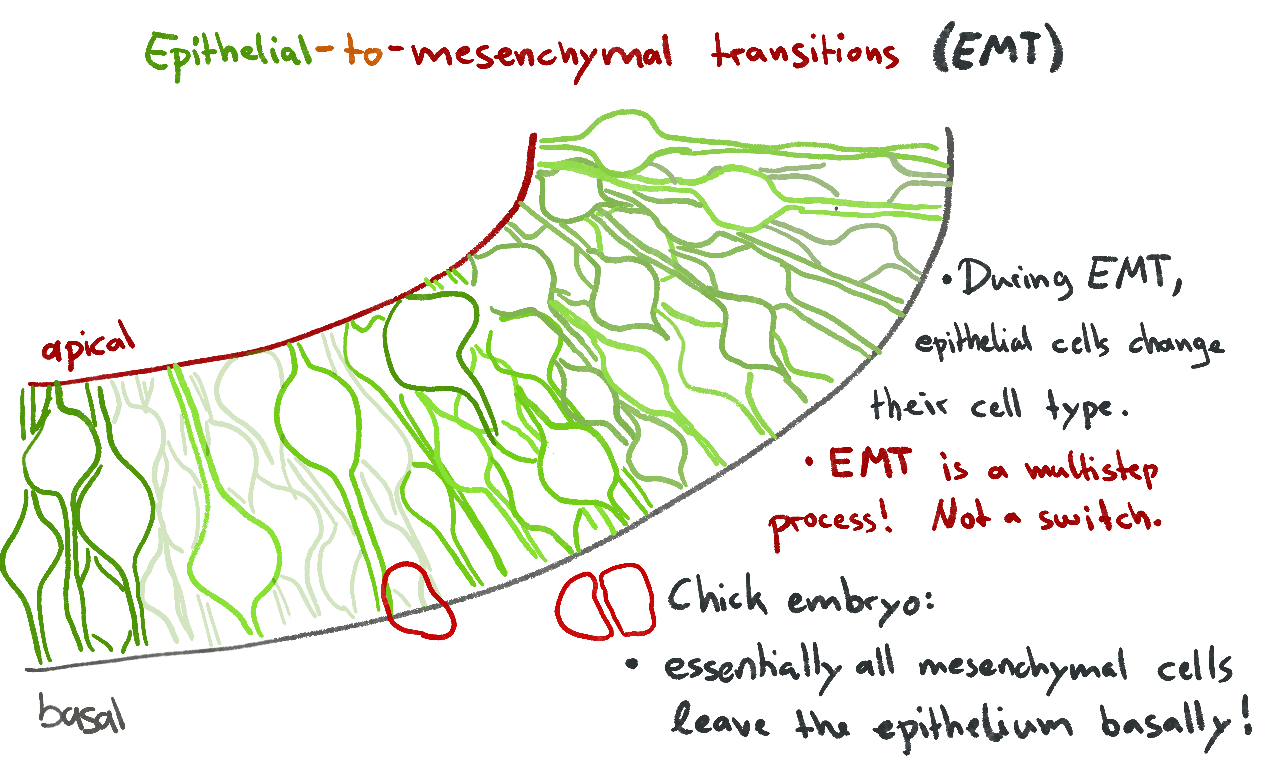 Epithelial-to-mesenchymal transitions (EMT)
apical
• During EMT,
epithelial cells change
their cell type.
• EMT is a multistep
process! Not a switch.
Chick embryo:
• essentially all mesenchymal cells
leave the epithelium basally!
basal